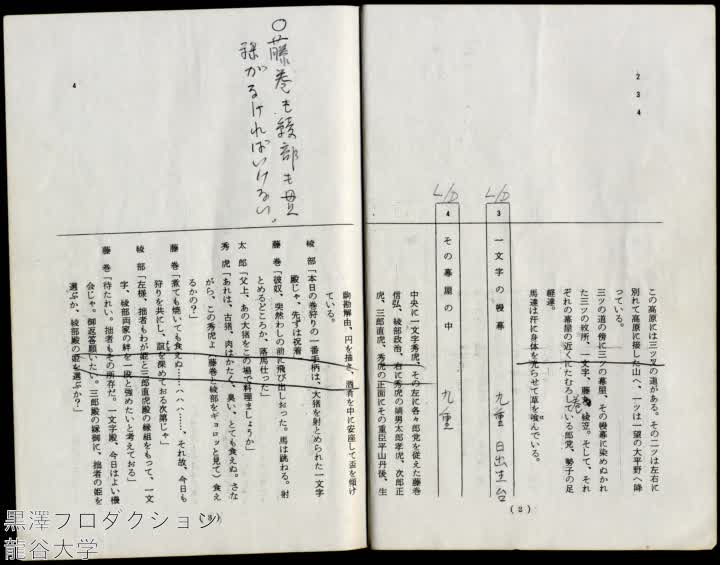 2
3
4
この高原には三ツ又の道がある。その二ツは左右に
別れて高原に接した山へ、一ツは一望の大平野へ降
っている。
三ツの道の傍に三ツの幕屋、その幔幕に染めぬかれ
た三ツの紋所、一文字、藤巻、綾笠。そして、それ
ぞれの幕屋の近くにたむろしている郎党、勢子の足
軽達。
馬達は汗に身体を光らせて草を喰んでいる。
L/O
3 一文字の幔幕 九重 日出生台
L/O
4 その幕屋の中 九重
中央に一文字秀虎、その左に各々郎党を従えた藤巻
信弘、綾部政治、右に秀虎の嫡男太郎孝虎、次郎正
虎、三郎直虎、秀虎の正面にその重臣平山丹後、生
(2)
4
○藤巻も綾部も
がなければいけない。
駒勘解由、円を描き、酒肴を中に安座して盃を傾け
ている。
綾部「本日の巻狩りの一番手柄は、大猪を射とめられた一文字
殿じゃ、先ずは祝着」
藤巻「彼奴、突然わしの前に飛び出しおった。馬は跳ねる。射
とめるどころか、落馬仕った」
太郎「父上、あの大猪をこの場で料理ましょうか」
秀虎「あれは、古猪、肉はかたく、臭い、とても食えぬ。さな
がら、この秀虎よ(藤巻と綾部をギョロッと見て)食え
るかの?」
藤巻「煮ても焼いても食えぬ……ハハハ……、それ故、今日も
狩りを共にし、誼を深めておる次第じゃ」
綾部「左様、拙者もわが姫と三郎直虎殿の縁組をもって、一文
字、綾部両家の絆を一段と強めたいと考えておる」
藤巻「待たれい。拙者もその所存だ。一文字殿、今日はよい機
会じゃ。御返答願いたい。三郎殿の縁御に、拙者の姫を
選ぶか、綾部殿の姫を選ぶか?」
(3)
黒澤プロダクション
龍谷大学